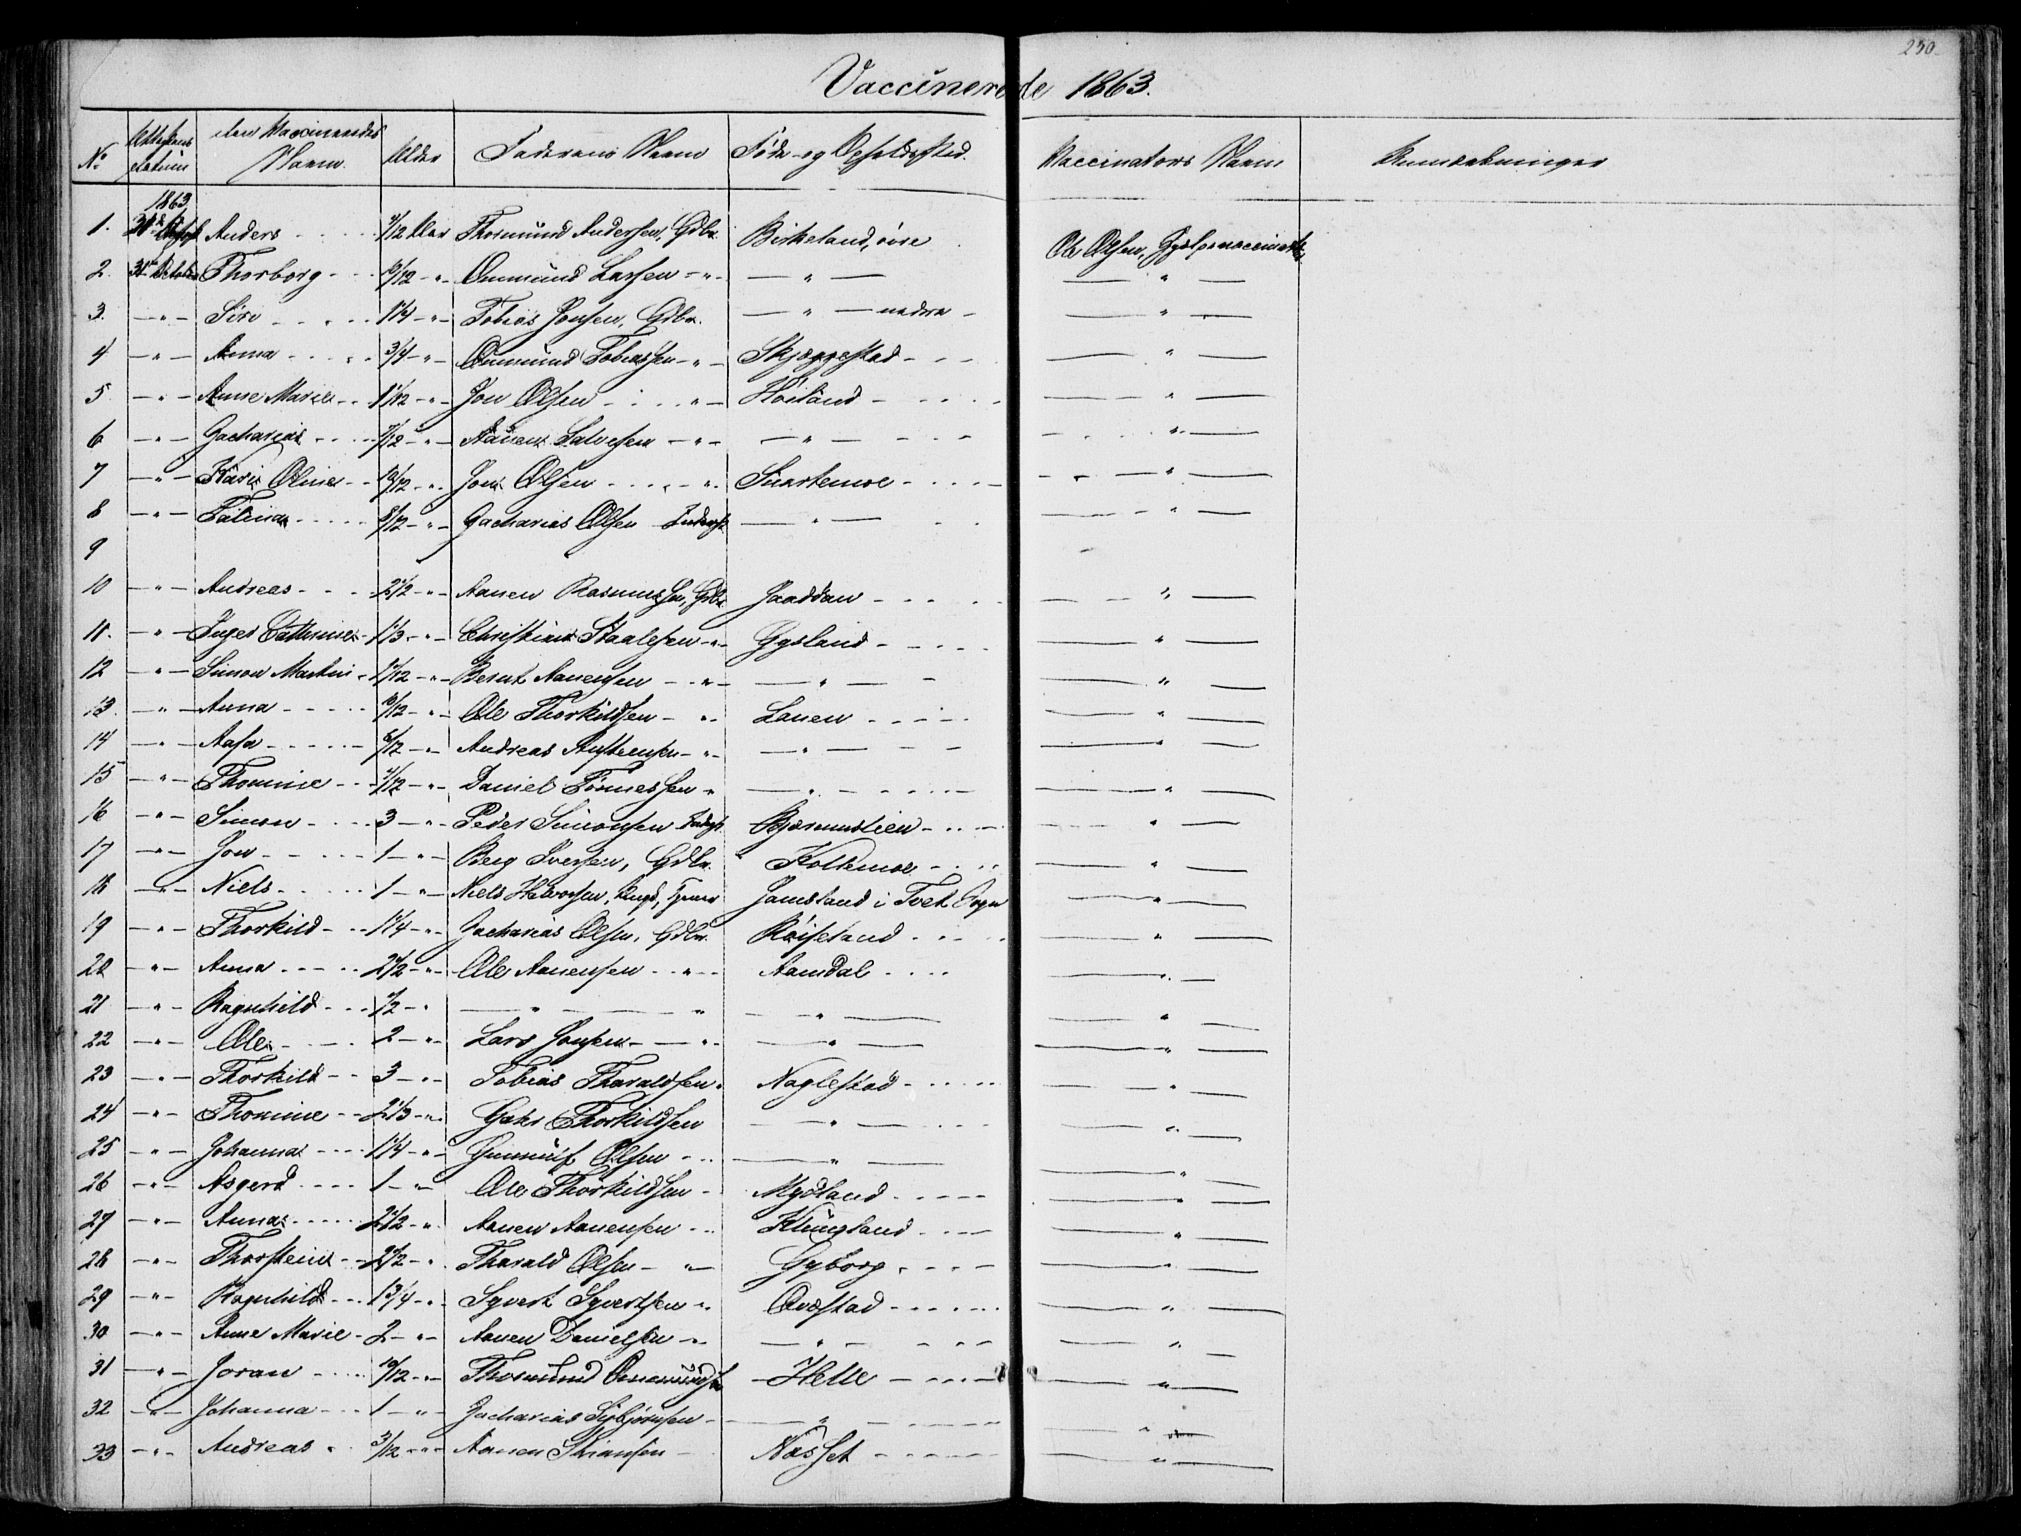 250.
Vaccinerede 1863.
No Attestens Datum den Vaccineredes Navn. Alder Faderens Navn Føde- og Opholdssted. Vaccinators Navn Anmærkninger
1863
1. Anders 4/12 Aar Thormund Andersen, Gdbr. Birkeland, øvre Ole Olsen,
2. 31 October Thorborg 10/12 -"- Onmund Larsen -"- — " — — " —
3. -"- Siri 1 1/4 -"- Tobias Jonsen, Gdbr. — " — nedre — " —
4 -"- Anna 3/4 -"- Onmund Tobiassen -"- Skjeggestad — " —
5 -"- Anne Marie 1 1/12 -"- Jon Olsen " Høiland — " —
6 -"- Zacharias 7/12 -"- Aanen Salvesen -"- — " — — " —
7 -"- Kari Oline 10/12 -"- Jon Olsen " Snartemoe — " —
8 -"- Talina 8/12 -"- Zacharias Olsen Inderst — " — — " —
9
10 -"- Andreas 2 1/2 -"- Aanen Rasmussen, Gdbr. Jaaddan — " —
11. -"- Inger Cathrine 1 1/3 -"- Christian Staalesen -"- Gysland — " —
12 -"- Simon Martin 1 1/12 -"- Bernt Aanensen -"- — " — — " —
13. -"- Anna 10/12 -"- Ole Thorkildsen " Lauen — " —
14 -"- Aasa 6/12 -"- Andreas Austensen -"- — " — — " —
15 -"- Thomine 4/12 -"- Daniel Tønnessen " — " — — " —
16 -"- Simon 3 -"- Peder Simonsen Inderst Bjørnmulien — " —
17 -"- Jon 1 -"- Berg Iversen, Gdbr. Koltemoe — " —
18 -"- Niels 1 -"- Niels Halvorsen, Jamsland i Tvet Sogn — " —
19 -"- Thorkild 1 1/4 -"- Zacharias Olsen, Gdbr. Røiseland — " —
20 -"- Anna 2 1/2 -"- Ole Aanensen -"- Aamdal — " —
21 -"- Ragnhild 1/2 -" — " — " — " — — " —
22 -"- Ole 2 -"- Lars Jonsen -"- — " — — " —
23 -"- Thorkild 3 -"- Tobias Tharaldsen " Naglestad — " —
24 -"- Thomine 2 1/3 -"- Gahr Thorkildsen — " — — " —
25 -"- Johanna 1 1/4 -"- Gunnuf Olsen — " — — " —
26 -"- Asgerd 1 -"- Ole Thorkildsen Mydland — " —
27 -"- Anna 2 1/2 -"- Aanen Aanensen Klungland — " —
28 -"- Thorstein 2 1/2 -" Tharald Olsen " Gyborg — " —
29 -"- Ragnhild 1 3/4 -"- Syvert Syvertsen " Qvestad — " —
30 -"- Anne Marie 2 -"- Aanen Danielsen -"- — " — — " —
31 -"- Joran 10/12 -"- Thormund Onmundsen Helle — " —
32 -"- Johanna 1 -"- Zacharias Sigbjørnsen — " — — " —
33 -"- Andreas 3/12 -"- Aanen Stiansen Nasset — " —